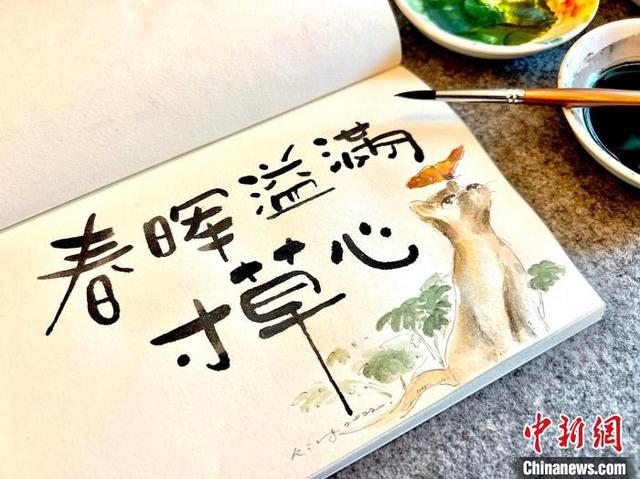 春晖溢满
寸草心
2022
中新网
Chinanews.com